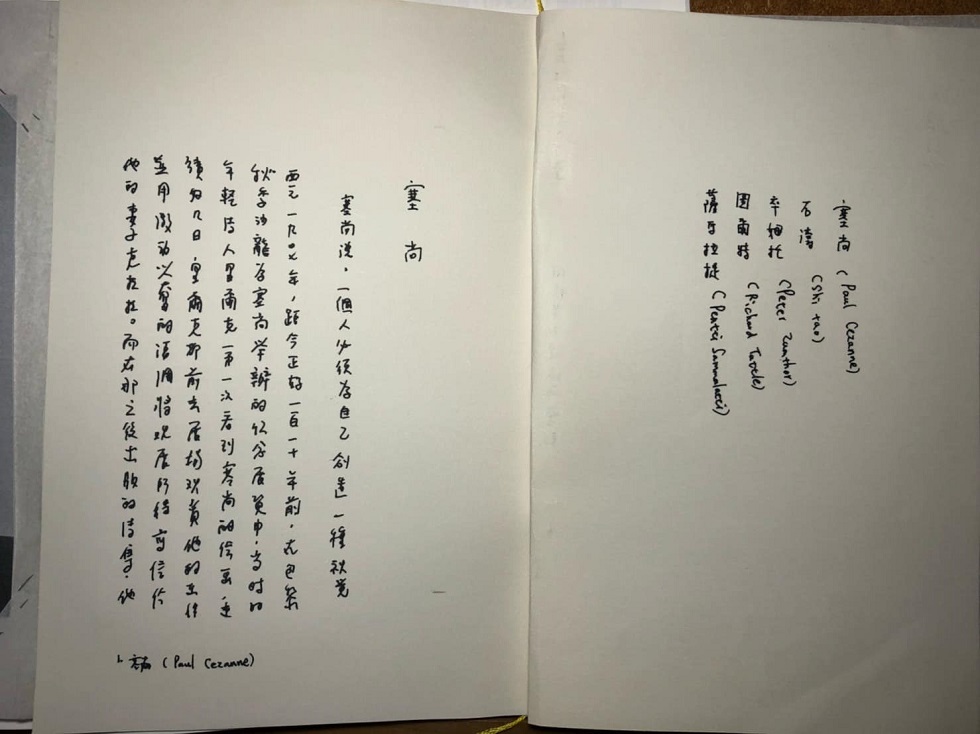 塞尚 (Paul Cezanne)
石濤 (Shi tao)
卒姆托 (Peter Zumthor)
圖爾特 (Richard Tuttle)
薩马拉提 (Pentti Sammallahti)
塞尚
塞尚说,一個人必須為自己創造一種視覺
西元一九〇七年,距今正好一百一十年前,在巴黎
秋季沙龍為塞尚举辦的纪念展覽中,当时的
年輕诗人里爾克第一次看到塞尚的绘画,連
續幾日,里爾克都前去展場观賞他的畫作
並用激动以奮的语調將观展所得寫信给
他的妻子克拉拉。而在那之後出版的诗集,他
塞尚 (Paul Cezanne)